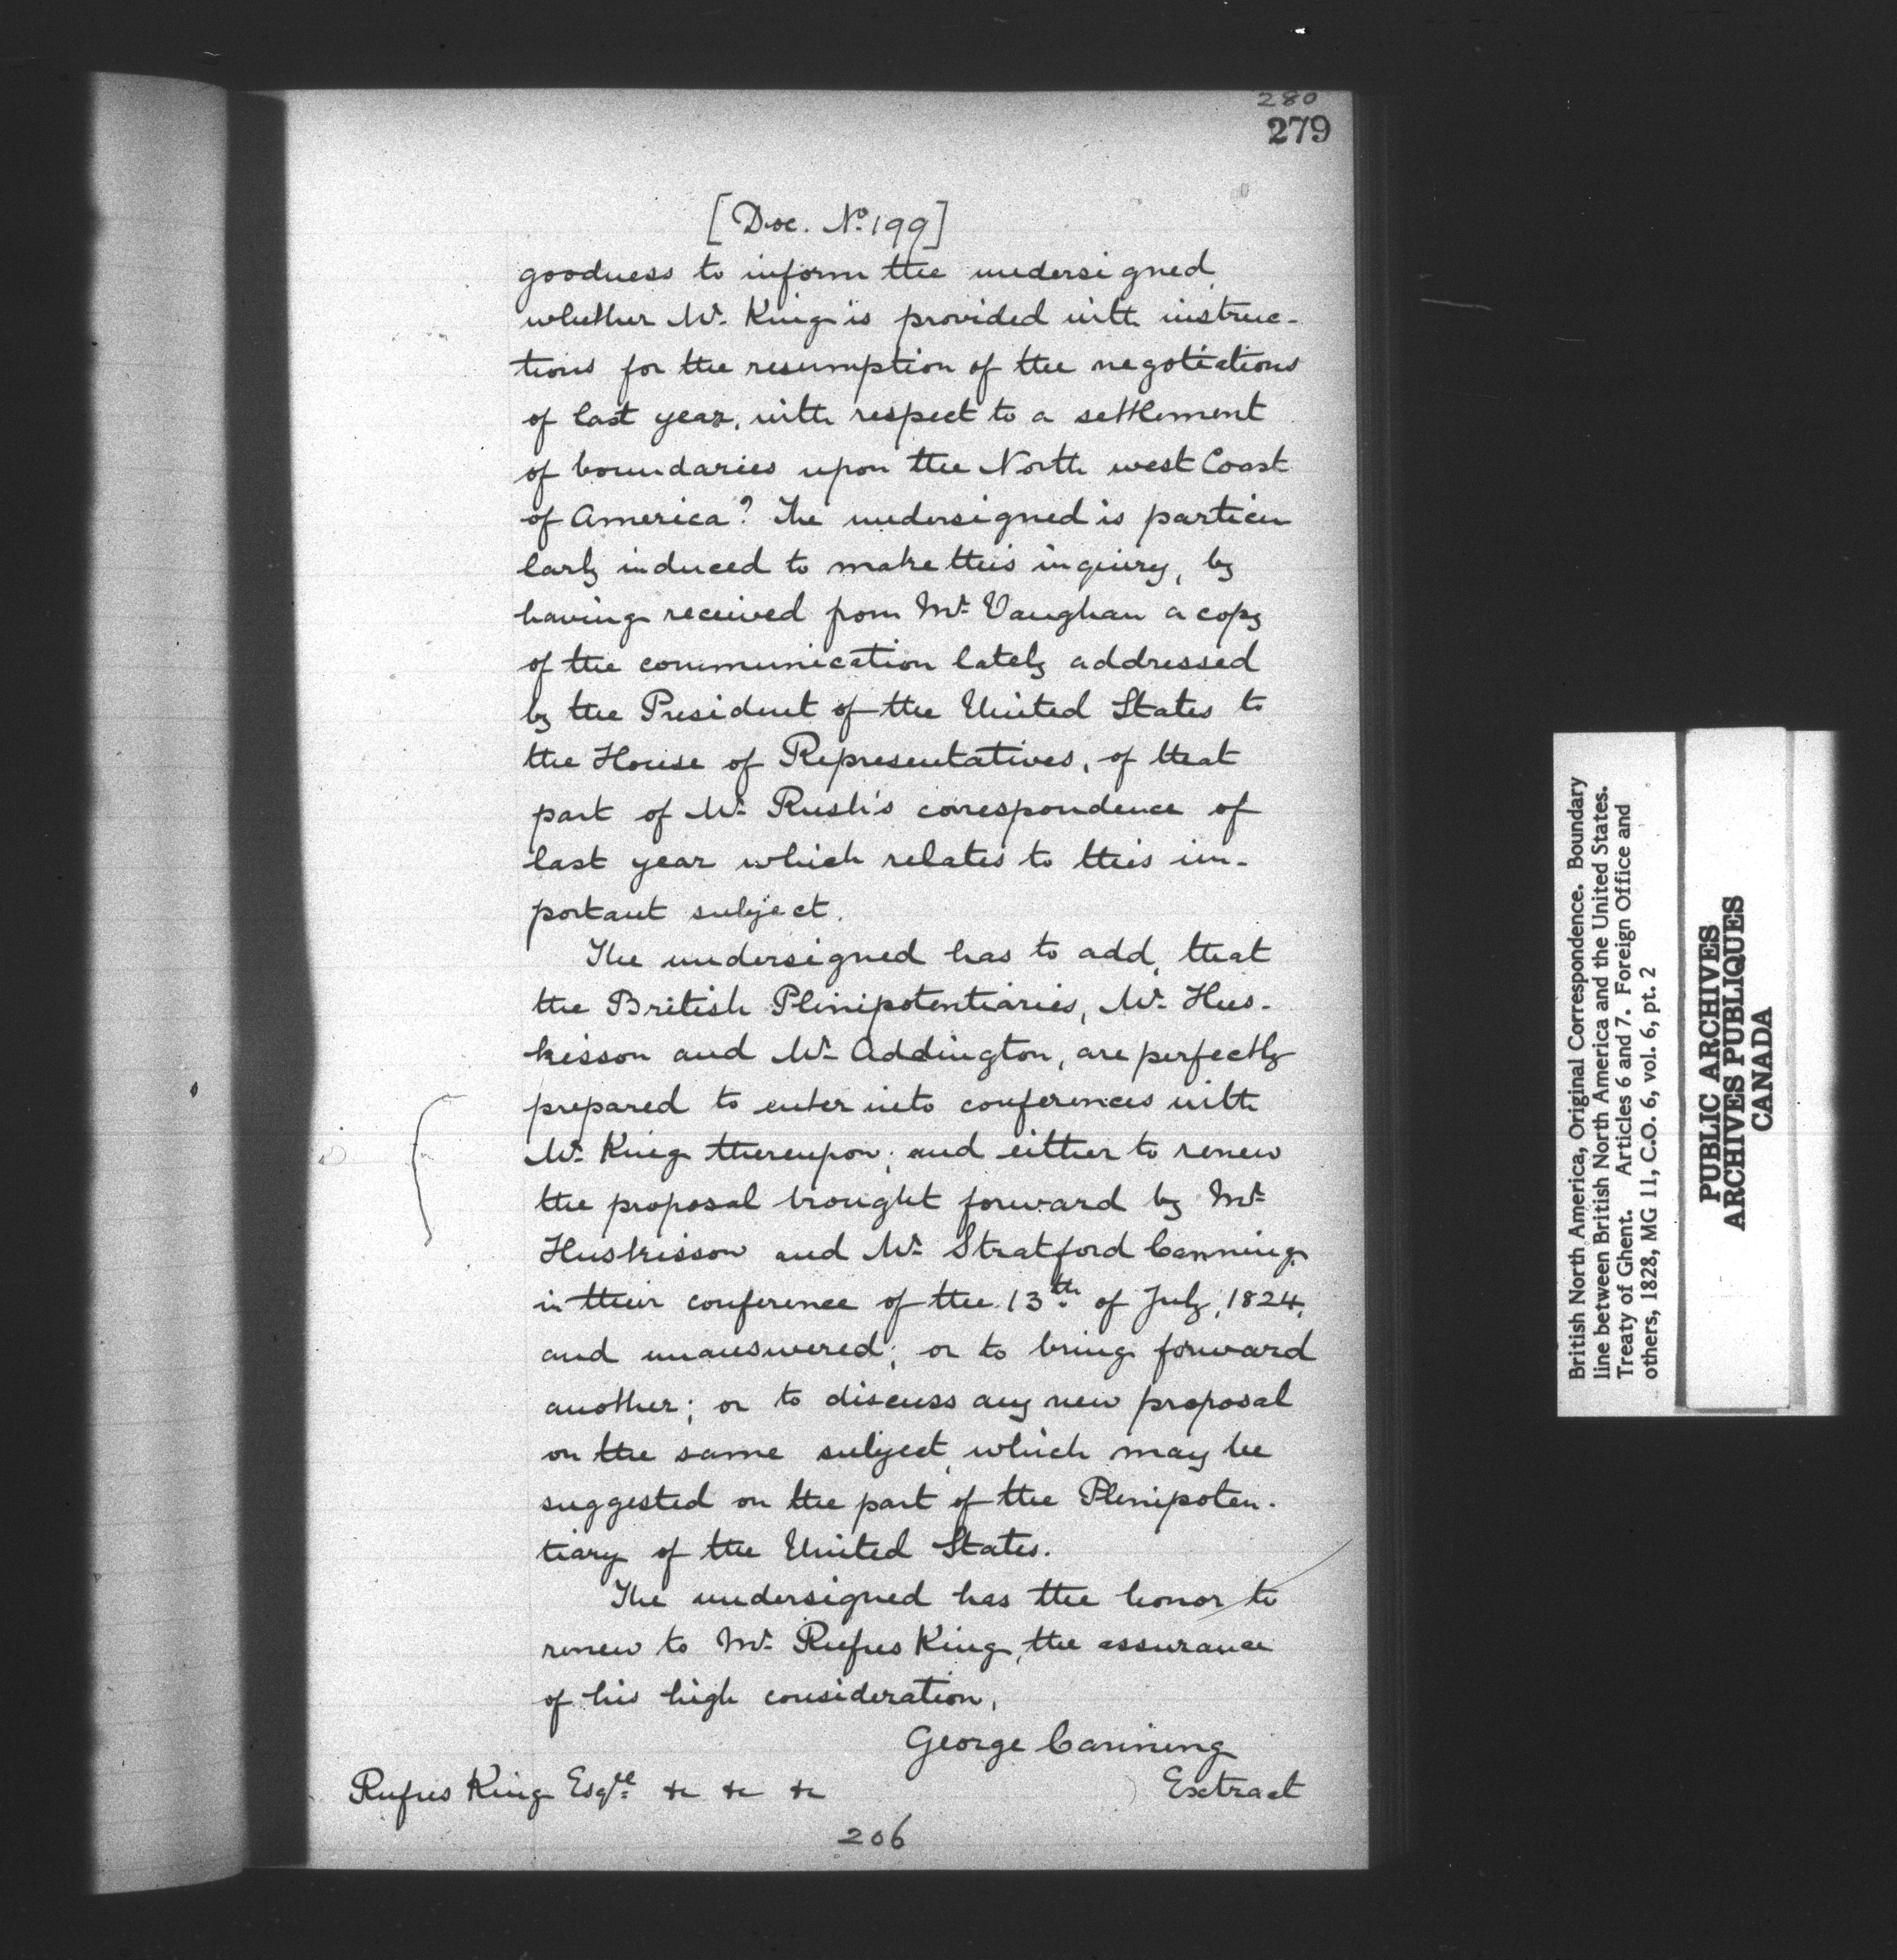 280
279
[Doc. No. 199]
goodness to inform the undersigned,
whether Mr. King is provided with instruc-
tions for the resumption of the negotiations
of last year, with respect to a settlement
of boundaries upon the North west Coast
of America? The undersigned is particu
larly induced to make this inquiry, by
having received from Mr. Vaughan a copy
of the communication lately addressed
by the President of the United States to
the House of Representatives, of that
part of Mr. Rush's correspondence of
last year which relates to this im-
portant subject.
The undersigned has to add, that
the British Plenipotentiaries, Mr. Hus-
kisson and Mr. Addington, are perfectly
prepared to enter into conferences with
Mr. King thereupon; and either to renew
the proposal brought forward by Mr.
Huskisson and Mr. Stratford Canning,
in their conference of the 13th. of July, 1824,
and unanswered; or to bring forward
another; or to discuss any new proposal
on the same subject, which may be
suggested on the part of the Plenipoten-
tiary of the United States.
The undersigned has the honor to
renew to Mr. Rufus King, the assurance
of his high consideration,
George Canning
Rufus King Esqre. &c &c &c
Extract
206
British North America, Original Correspondence. Boundary
line between British North America and the United States.
Treaty of Ghent. Articles 6 and 7. Foreign Office and
others, 1828, MG 11, C.O. 6, vol. 6, pt. 2
PUBLIC ARCHIVES
ARCHIVES PUBLIQUES
CANADA